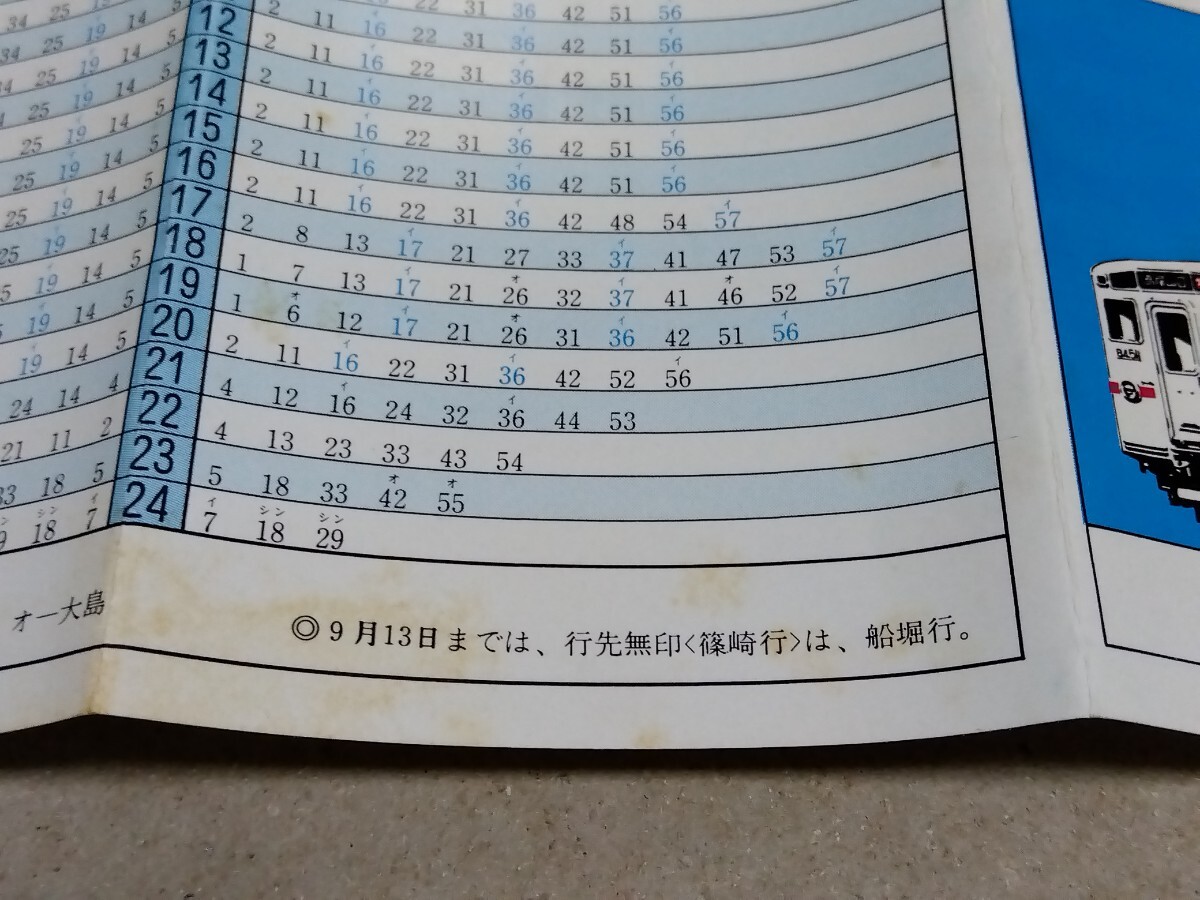 22 31 36 42 51 56
34 25 19 14 5 12 2 11 イ16 22 31 イ36 42 51 イ56
34 25 イ19 14 5 13 2 11 イ16 22 31 イ36 42 51 イ56
25 イ19 14 5 14 2 11 イ16 22 31 イ36 42 51 イ56
25 イ19 14 5 15 2 11 イ16 22 31 イ36 42 51 イ56
25 イ19 14 5 16 2 11 イ16 22 31 イ36 42 48 54 イ57
25 イ19 14 5 17 2 8 13 イ17 21 27 33 イ37 41 47 53 イ57
イ19 14 5 18 1 7 13 イ17 21 オ26 32 イ37 41 オ46 52 イ57
イ19 14 5 19 1 オ6 12 イ17 21 オ26 31 イ36 42 51 イ56
イ19 14 5 20 2 11 イ16 22 31 イ36 42 52 イ56
24 14 4 21 4 12 イ16 24 32 イ36 44 53
21 11 2 22 4 13 23 33 43 54
33 18 5 23 5 18 33 オ42 オ55
シン18 イ7 24 イ7 シン18 シン29
オー大島
◎9月13日までは、行先無印<篠崎行>は、船堀行。